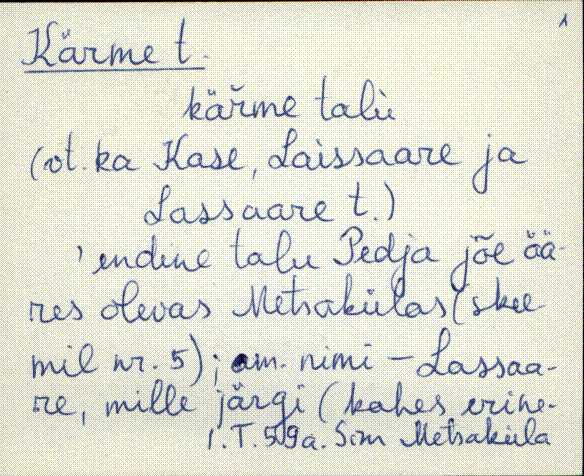 1
Kärme t.
kär̆me talù
(vt. ka Kase, Laissaare ja
Lassaare t.)
'endine talu Pedja jõe ää-
res olevas Metsakülas (skee-
mil nr. 5); am. nimi – Lassaa-
re, mille järgi (kahes erine-
I.T. 59a. Sim Metsaküla